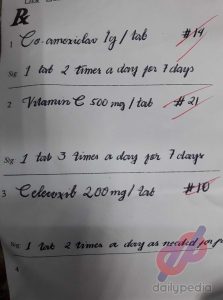 Rx
1 Co-amoxiclav 1g / tab #14
Sig 1 tab 2 times a day for 7 days
2 Vitamin C 500 mg / tab #21
Sig 1 tab 3 times a day for 7 days
3 Celecoxib 200 mg / tab #10
Sig 1 tab 2 times a day as needed for
4
dailypedia